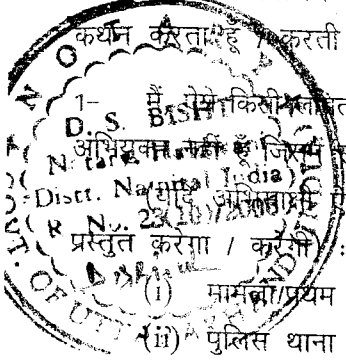 कथन करता हूँ / करती
1- मैं ऐसे किसी लंबित
अभियुक्त नहीं हूँ जिसमें
(यदि अभिसाक्षी ऐ
प्रस्तुत करेगा / करेगी) :
(i) मामला/प्रथम
(ii) पुलिस थाना
NOTA
D. S. BISHT
Distt. Nainital India)
R. No. 23(10)/200
GOVT. OF UTTARAKHAND